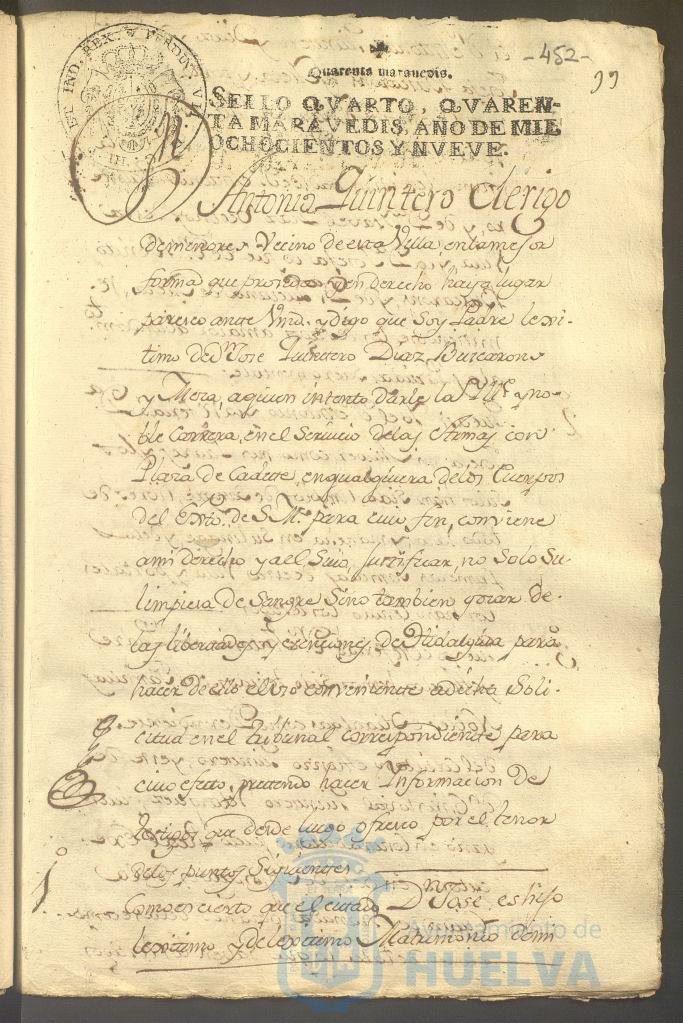 -452-
99
ET IND. REX. FERDIN. V
Quarenta maravedis.
SELLO QVARTO, QVAREN-
TA MARAVEDIS, AÑO DE MIL
OCHOCIENTOS Y NVEVE.
Dn Antonio Quintero Clerigo
de menores Vecino de esta Villa, en la mejor
forma que proseda y en derecho haya lugar
paresco ante Vmd. y digo que Soy Padre lexi-
timo de Dn Jose Quintero Diaz Buscarons
y Mora, a quien intento darle la y no-
ble Carrera, en el Servicio de las Armas con
Plaza de Cadete, en qualquiera de los Cuerpos
del Exto. de S. M. para cuio fin, conviene
a mi derecho y a el Suio, Justificar, no Solo Su
limpieza de Sangre Sino tambien gozar de
las libertades y esenciones de Hidalguia para
hacer de ello el uso conveniente a dicha Soli-
citud en el Tribunal correspondiente para
cuio efecto, pretendo hacer Informacion de
testigos que desde luego ofresco por el tenor
de los puntos Siguientes
1º
Como es cierto que el citado Dn Jose, es hijo
lexitimo y de lexitimo Matrimonio de mi
Ayuntamiento de
HUELVA